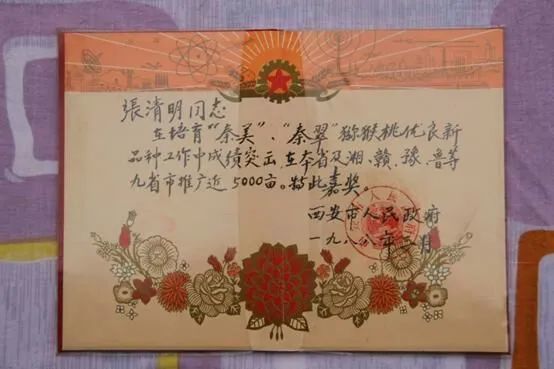 張清明同志
在培育“秦美”、“秦翠”猕猴桃优良新
品种工作中成绩突出，在本省及湘、赣、豫、鲁等
九省市推广近5000亩。特此嘉奖。
西安市人民政府
一九八八年三月